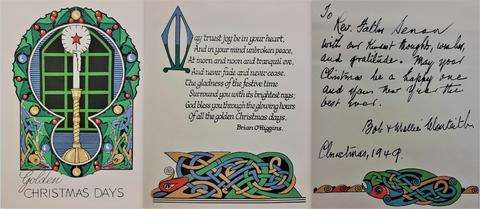 Golden
CHRISTMAS DAYS
May trust joy be in your heart,
And in your mind unbroken peace,
At morn and noon and tranquil eve,
And never fade and never cease.
The gladness of the festive time
Surround you with its brightest rays;
God bless you through the glowing hours
Of all the golden Christmas days.
Brian O'Higgins.
To
Rev. Father Senan
With our kindest thoughts, wishes,
and gratitude. May your
Christmas be a happy one
and your New Year the
best ever.
Bob & Mollie Monteith
Christmas, 1949.